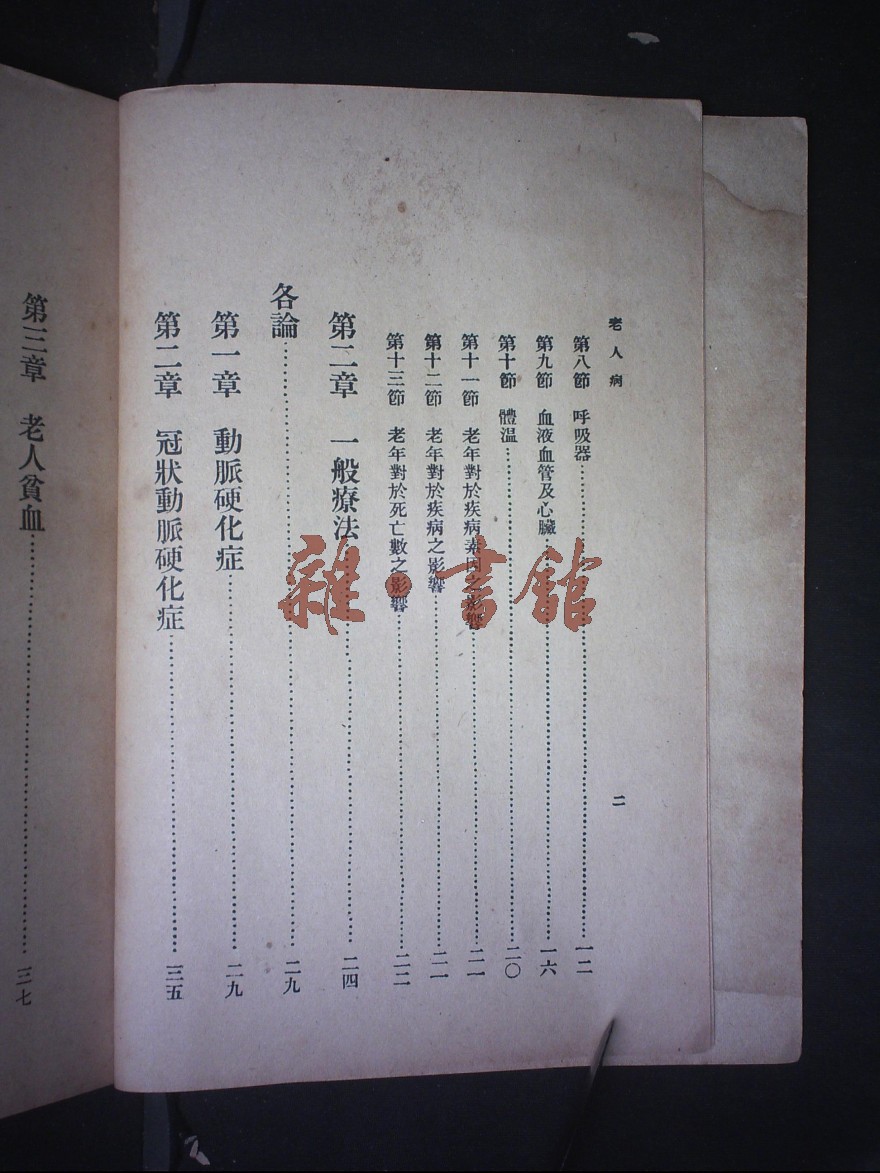 老人病
二
第八節 呼吸器……一二
第九節 血液血管及心臟……一六
第十節 體温……二〇
第十一節 老年對於疾病素因之影響……二一
第十二節 老年對於疾病之影響……二一
第十三節 老年對於死亡數之影響……二二
第二章 一般療法……二四
各論……二九
第一章 動脈硬化症……二九
第二章 冠狀動脈硬化症……三五
第三章 老人貧血……三七
雜·書館